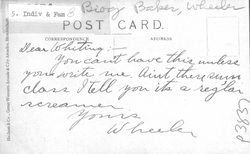 5. Indiv & Fam
Booker, Wheeler
POST CARD.
CORRESPONDENCE
ADDRESS
Dear Whiting:-
You can't have this unless
you write me. Ain't there sum
class I tell you its a reg'lar
screamer
Yours
Wheeler